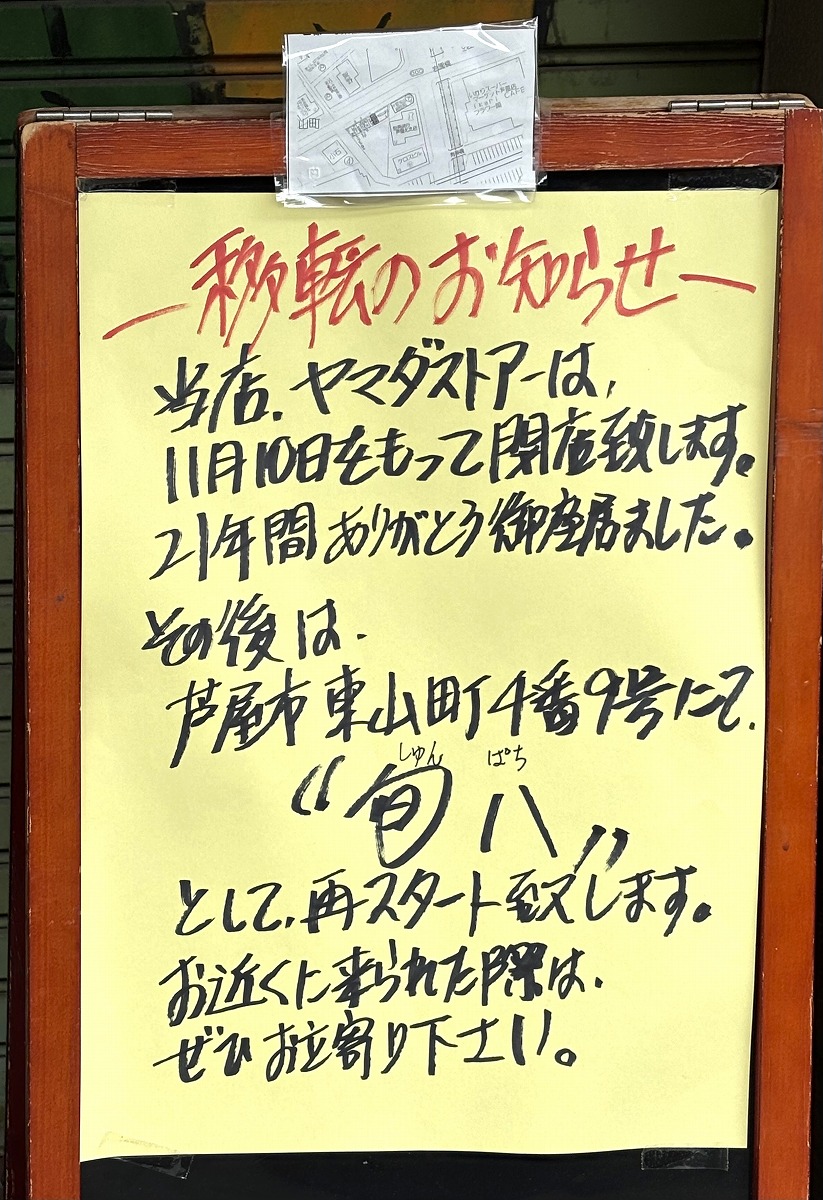 ー移転のお知らせー
当店、ヤマダストアーは、
11月10日をもって閉店致します。
21年間ありがとう御座居ました。
その後は、
芦屋市東山町4番9号にて、
しゅん ぱち
“旬八”
として、再スタート致します。
お近くに来られた際は、
ぜひお立寄り下さい。